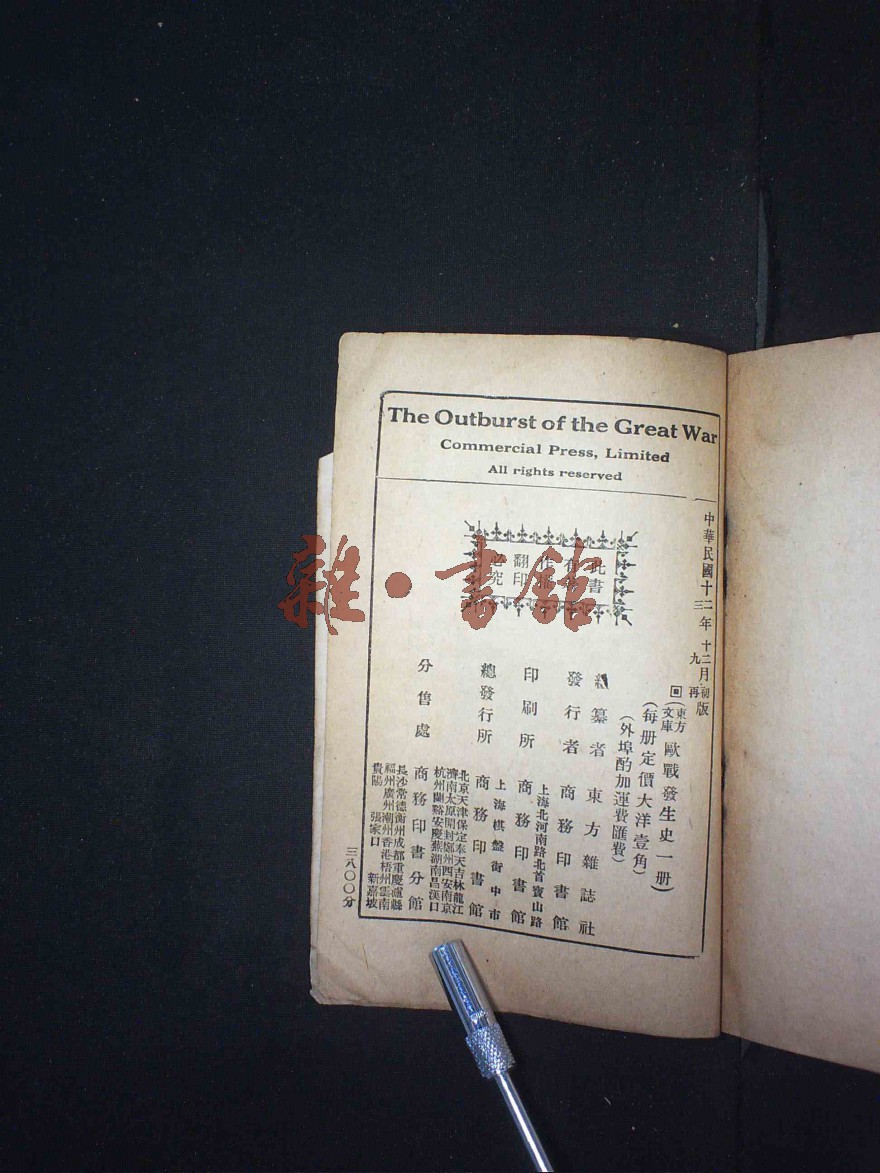 The Outburst of the Great War
Commercial Press, Limited
All rights reserved
中華民國十二年十二月初版
三 九 再
(東方文庫)歐戰發生史一册)
(每册定價大洋壹角)
(外埠酌加運費匯費)
此書
翻印
必究
纂者 東方雜誌社
發行者 商務印書館
上海北河南路北首寶山路
印刷所 商務印書館
上海棋盤街中市
總發行所 商務印書館
分售處 商務印書分館
北京天津保定奉天吉林龍江
濟南太原開封鄭州西安南京
杭州蘭谿安慶蕪湖南昌漢口
長沙常德衡州成都重慶瀘縣
福州廣州潮州香港梧州雲南
貴陽 張家口 新嘉坡
三八〇〇分
雜·書館